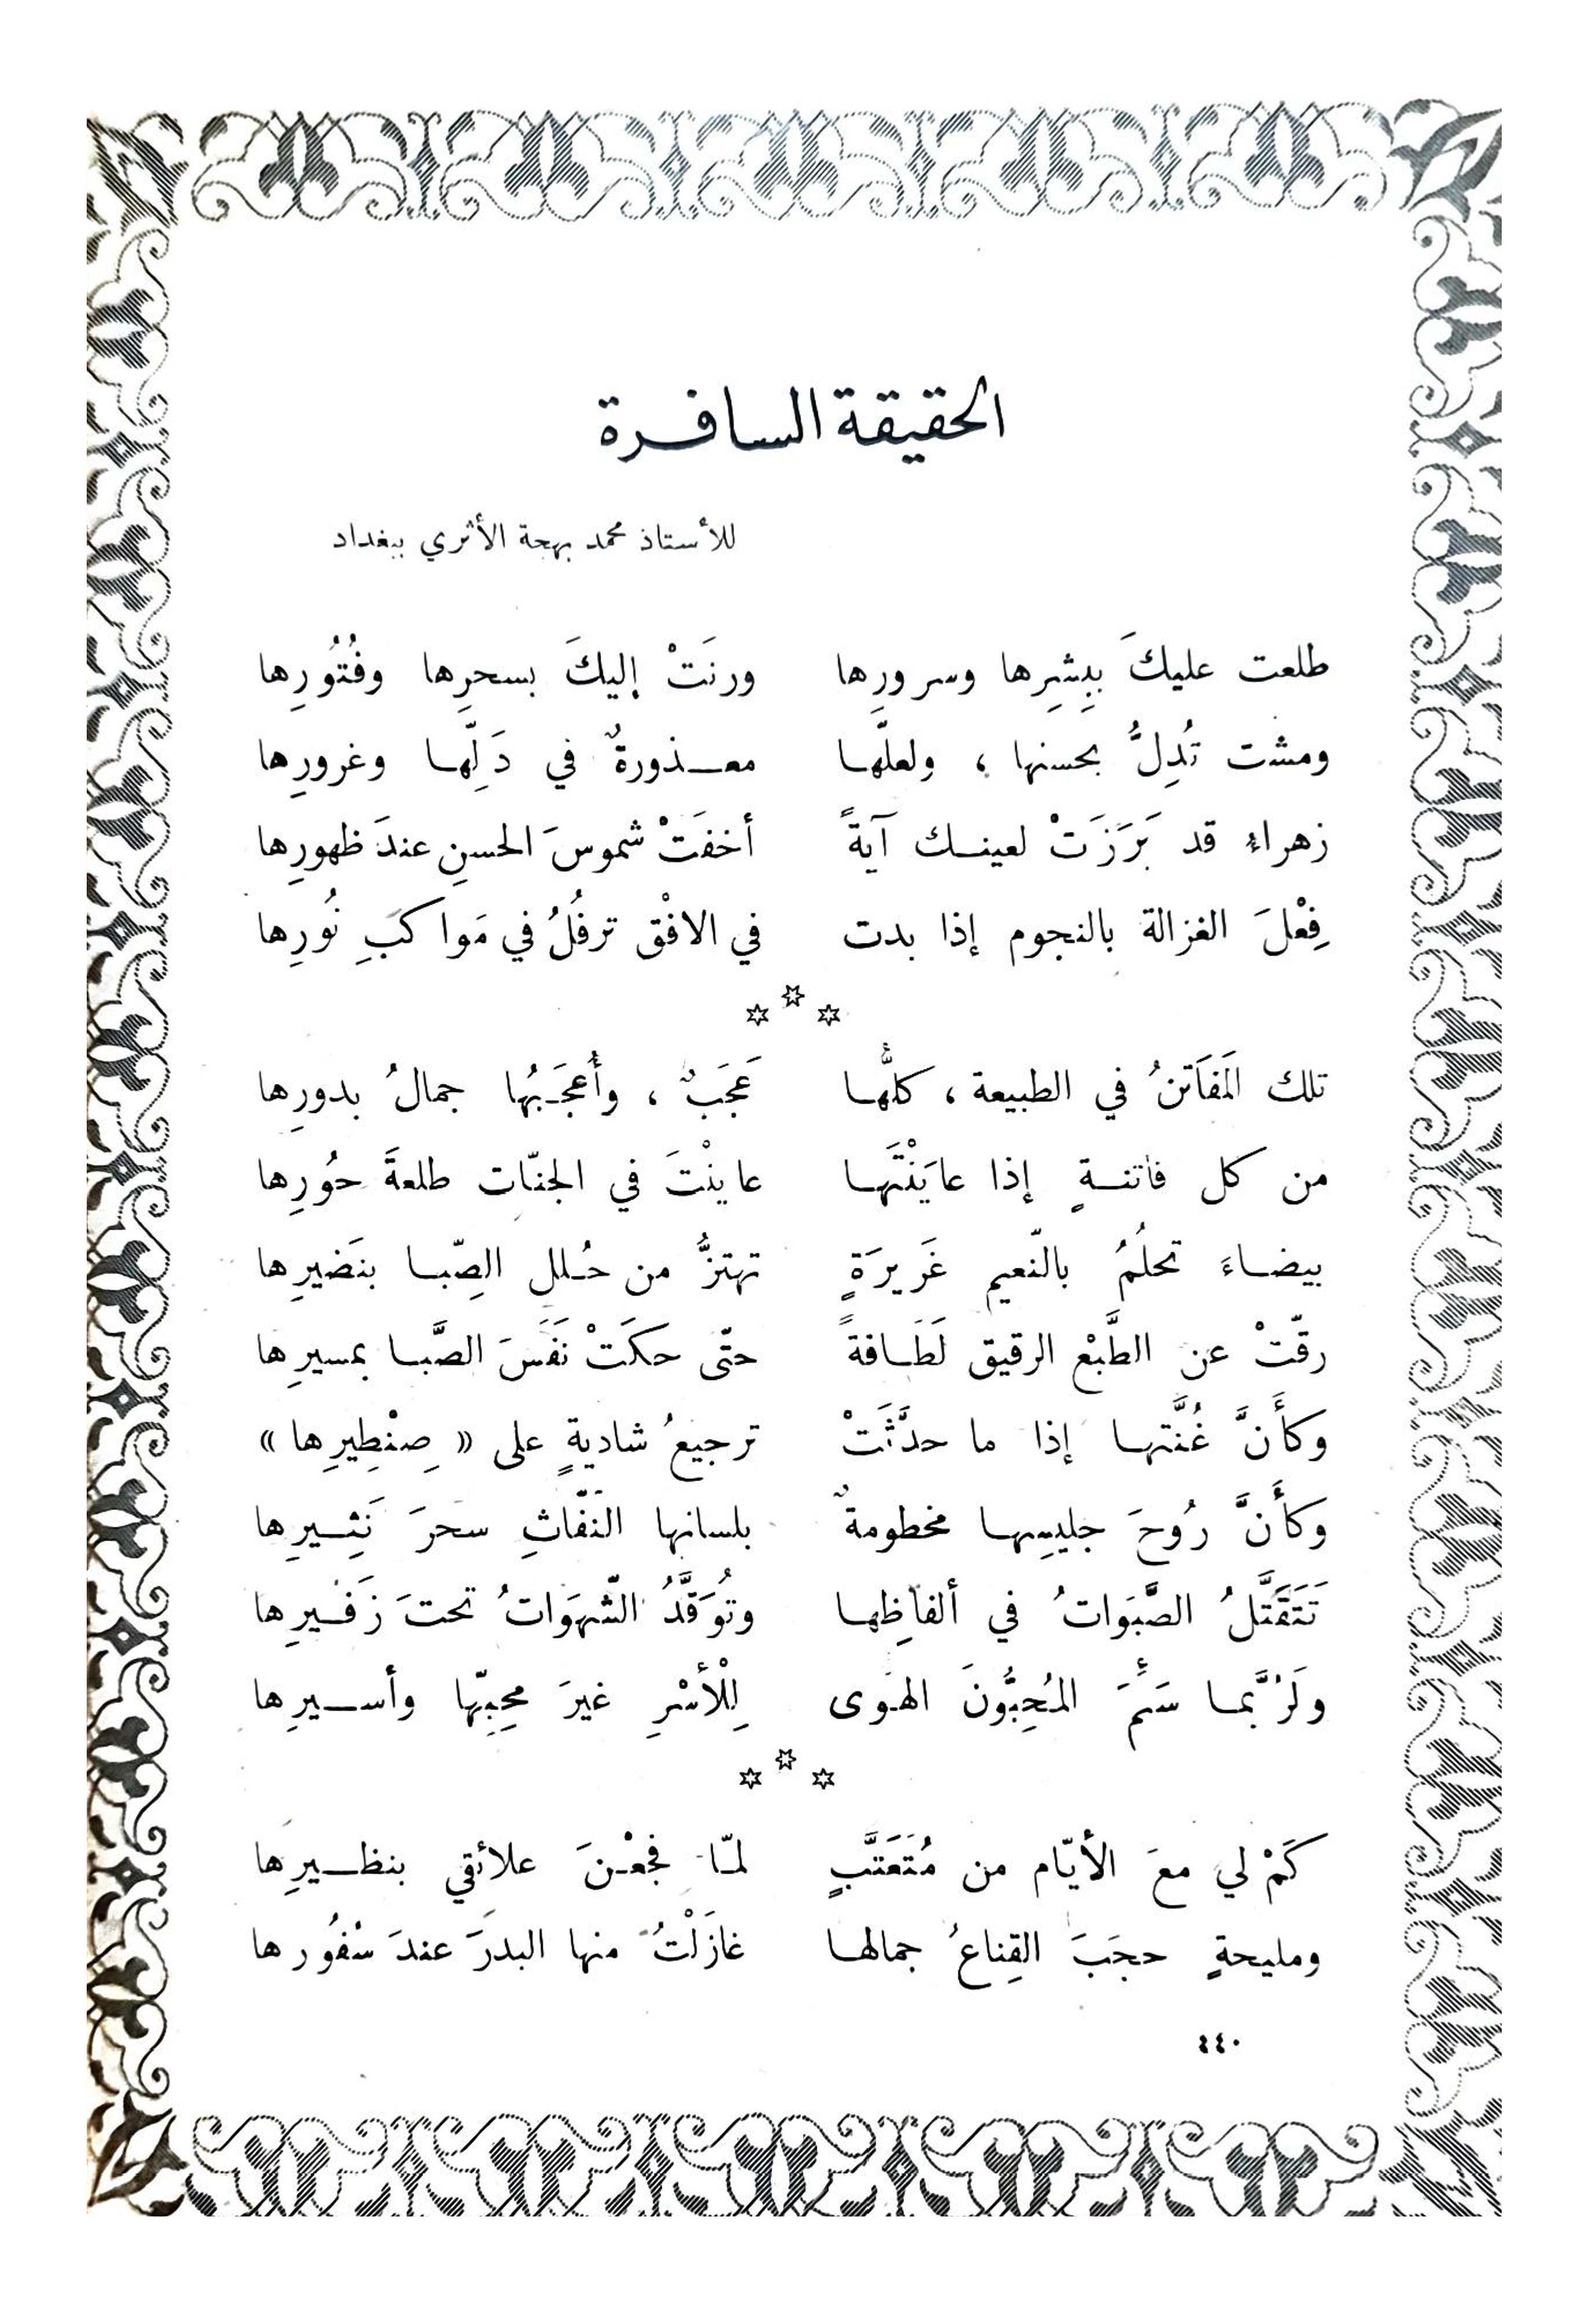 الحقيقة السافرة
للأستاذ محمد بهجة الأثري ببغداد
طلعت عليكَ بِبِشرِها وسرورِها ورنَتْ إليكَ بسحرِها وفُتُورِها
ومشت تُدِلُّ بحسنها ، ولعلّها معذورةٌ في دَلِّها وغرورِها
زهراء قد بَرَزَتْ لعينك آيةً أخفَتْ شموسَ الحسنِ عندَ ظهورِها
فِعْلَ الغزالة بالنجوم إذا بدت في الافْق ترفُلُ في مَواكبِ نُورِها
***
تلك المَفَاتنُ في الطبيعة ، كلُّها عَجَبٌ ، وأَعجَبُها جمالُ بدورِها
من كل فاتنةٍ إذا عايَنْتَها عاينْتَ في الجنّات طلعةَ حُورِها
بيضاءَ تحلُمُ بالنّعيم غَريرَةٍ تهتزُّ من حُلل الصِّبا بنَضيرِها
رقّتْ عن الطَّبْع الرقيق لَطَافةً حتّى حكَتْ نَفَسَ الصَّبا بمسيرِها
وكأَنَّ غُنَّتها إذا ما حدَّثَتْ ترجيعُ شاديةٍ على « صِنْطِيرِها »
وكأَنَّ رُوحَ جليسِها مخطومةٌ بلسانها النفّاثِ سحرَ نَثِيرِها
تَتَقَتَّلُ الصَّبَواتُ في ألفاظِها وتُوَقَّدُ الشّهَواتُ تحتَ زَفيرِها
ولَرُبَّما سَئِمَ المُحِبُّونَ الهوى لِلْأسْرِ غيرَ محِبِّها وأسيرِها
***
كَمْ لي معَ الأيّام من مُتَعَتَّبٍ لمّا فجعْنَ علائقي بنظيرِها
ومليحةٍ حجَبَ القِناعُ جمالها غازَلْتُ منها البدرَ عندَ سُفُورها
٤٤٠